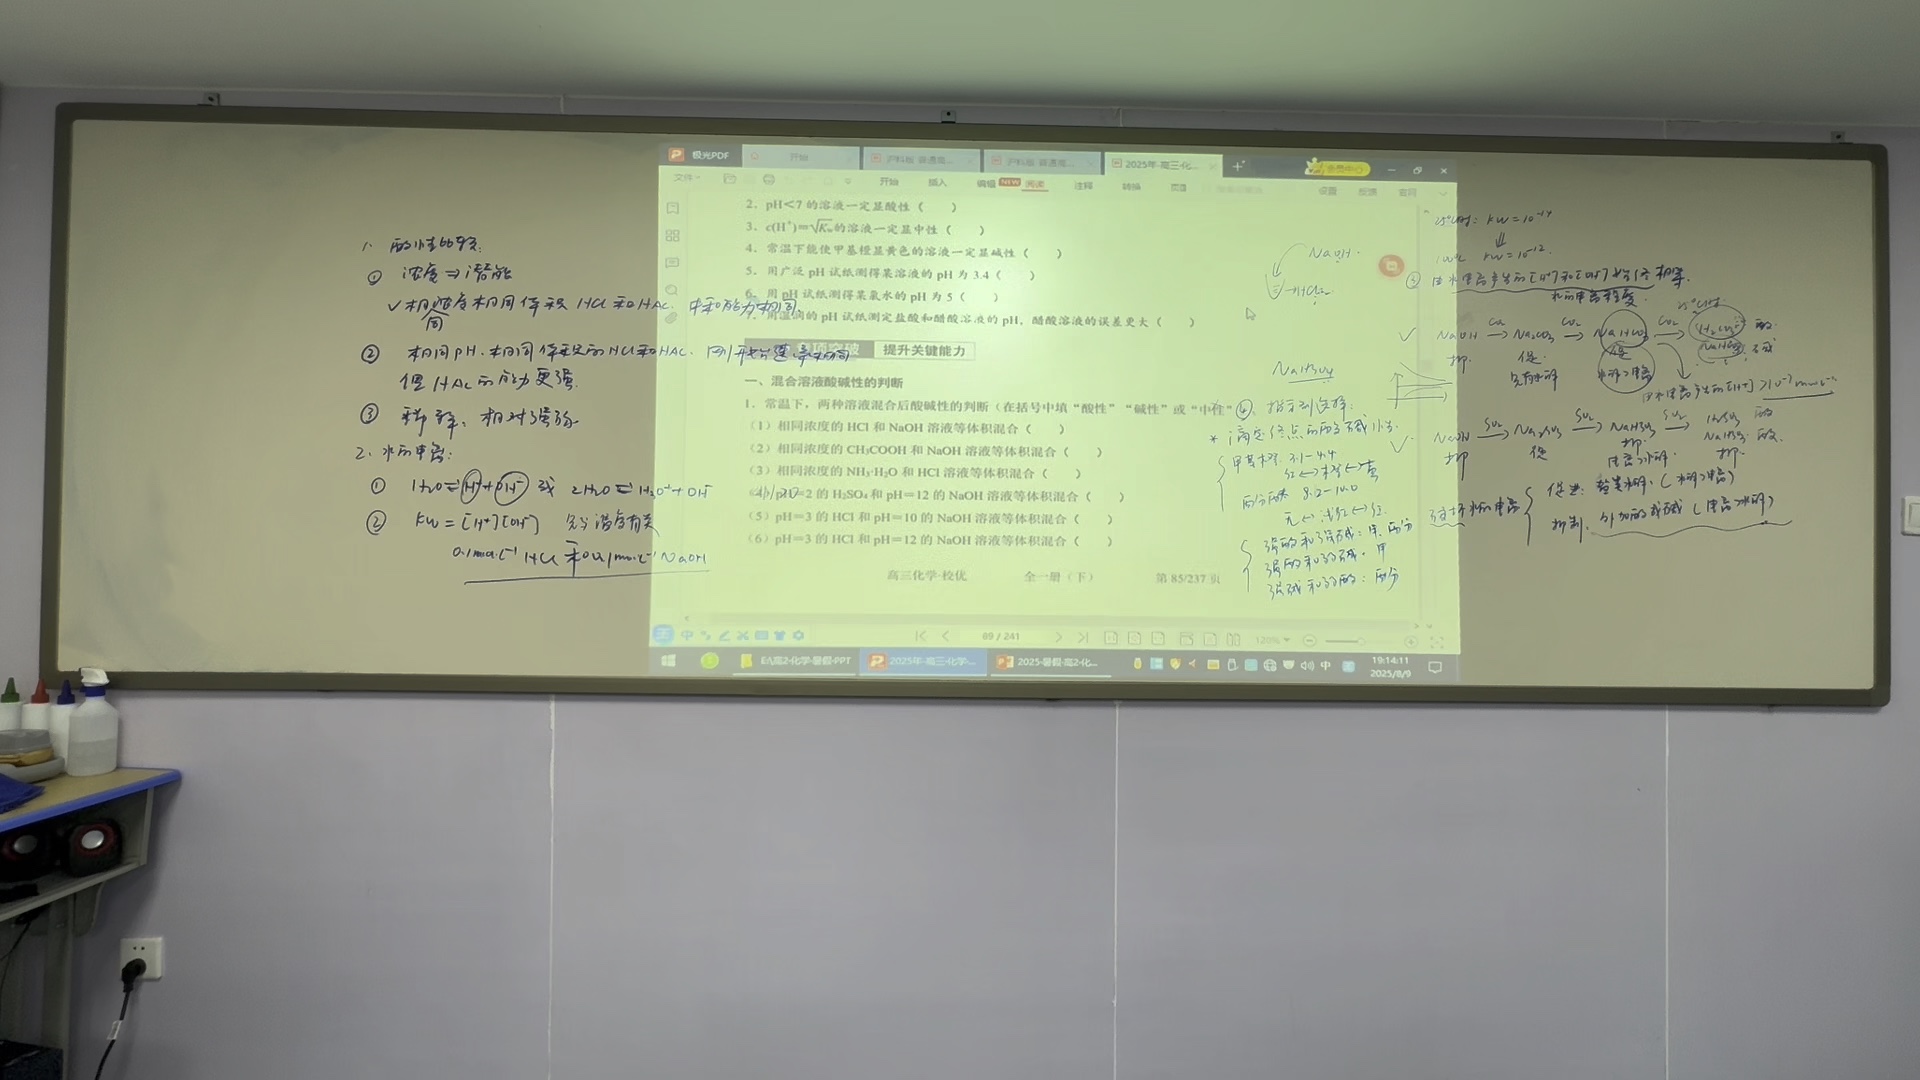 1. 酸性比较:
① 浓度 ⇒ 潜能
✓ 相同浓度相同体积 HCl 和 HAc. 中和能力相同
② 相同pH. 相同体积的 HCl 和 HAc. 刚开始速率相同
但 HAc 的能力更强.
③ 稀释: 相对强弱
2. 水的电离:
① H₂O ⇌ H⁺+OH⁻ 或 2H₂O ⇌ H₃O⁺+OH⁻
② KW = [H⁺][OH⁻] 只与温度有关
0.1mol·L⁻¹ HCl 和 0.1mol·L⁻¹ NaOH
极光PDF
开始
沪科版 普通高...
沪科版 普通高...
2025年-高三-化...
会员中心
文件
开始 插入 编辑 NEW 阅读 注释 转换 页面
设置 反馈 官网
2. pH<7 的溶液一定显酸性（ ）
3. c(H⁺)=√Kw的溶液一定显中性（ ）
4. 常温下能使甲基橙显黄色的溶液一定显碱性（ ）
5. 用广泛 pH 试纸测得某溶液的 pH 为 3.4（ ）
6. 用 pH 试纸测得某氯水的 pH 为 5（ ）
7. 用湿润的 pH 试纸测定盐酸和醋酸溶液的 pH，醋酸溶液的误差更大（ ）
专项突破 提升关键能力
一、混合溶液酸碱性的判断
1. 常温下，两种溶液混合后酸碱性的判断（在括号中填“酸性”“碱性”或“中性”
（1）相同浓度的 HCl 和 NaOH 溶液等体积混合（ ）
（2）相同浓度的 CH₃COOH 和 NaOH 溶液等体积混合（ ）
（3）相同浓度的 NH₃·H₂O 和 HCl 溶液等体积混合（ ）
pH=2 的 H₂SO₄ 和 pH=12 的 NaOH 溶液等体积混合（ ）
（5）pH=3 的 HCl 和 pH=10 的 NaOH 溶液等体积混合（ ）
（6）pH=3 的 HCl 和 pH=12 的 NaOH 溶液等体积混合（ ）
高三化学·校优 全一册（下） 第 85/237 页
89 / 241
120%
E\高2-化学-暑假-PPT
2025年-高三-化学-...
2025-暑假-高2-化...
中
19:14:11
2025/8/9
NaOH
NaHSO₄
④. 指示剂选择:
* 滴定终点的酸碱性
甲基橙. 3.1-4.4
红↔橙↔黄
酚酞 8.2-10.0
无↔浅红↔红
强酸和强碱: 甲. 酚
强酸和弱碱. 甲
强碱和弱酸: 酚
25℃时: KW=10⁻¹⁴
100℃ KW=10⁻¹².
③ 由水电离产生的[H⁺]和[OH⁻]始终相等.
水的电离程度.
25℃时.
✓ NaOH —CO₂→ Na₂CO₃ —CO₂→ NaHCO₃ —CO₂→ H₂CO₃ 酸.
NaHCO₃ 碱
抑. 促. 促
水解>电离
由水电离产生的[H⁺]>10⁻⁷mol·L⁻¹
✓ NaOH —SO₂→ Na₂SO₃ —SO₂→ NaHSO₃ —SO₂→ H₂SO₃ 酸
NaHSO₃ 酸.
抑 促 抑. 抑.
电离>水解.
水的电离
促进: 盐类水解. (水解>电离)
抑制. 外加酸或碱 (电离>水解)